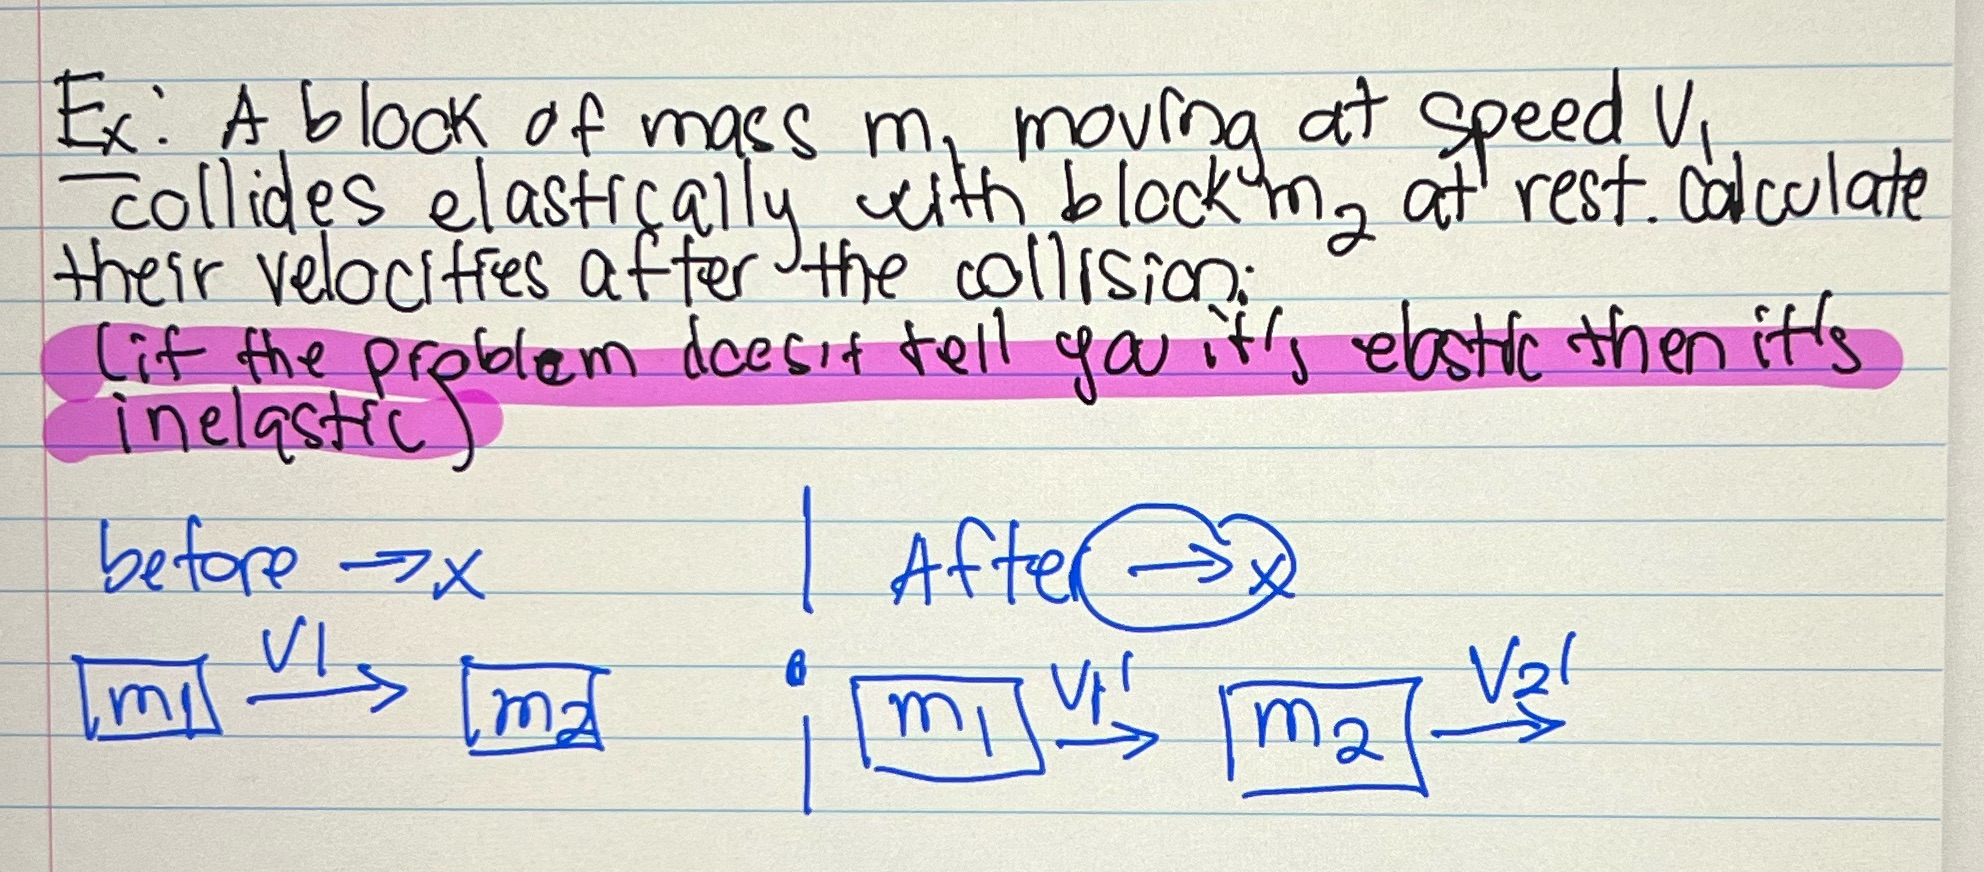 Ex: A block of mass m₁ moving at speed V₁
collides elastically with block m₂ at rest. Calculate
their velocities after the collision:
(if the problem doesn't tell you it's elastic then it's
inelastic)
before →x
After →x
V1
V1'
V2'
m1
m2
m1
m2